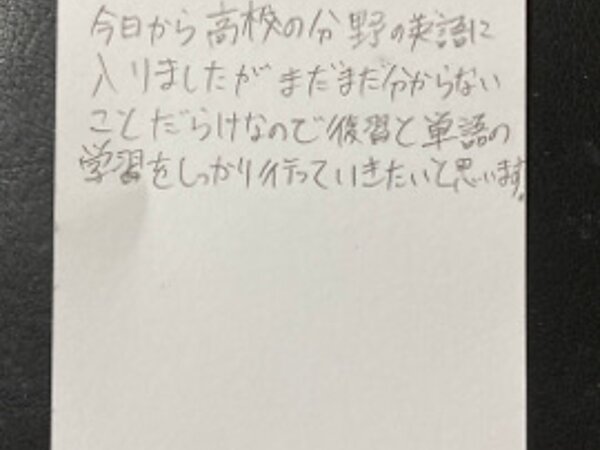 今日から高校の分野の英語に
入りましたがまだまだ分からない
ことだらけなので復習と単語の
学習をしっかり行っていきたいと思います。